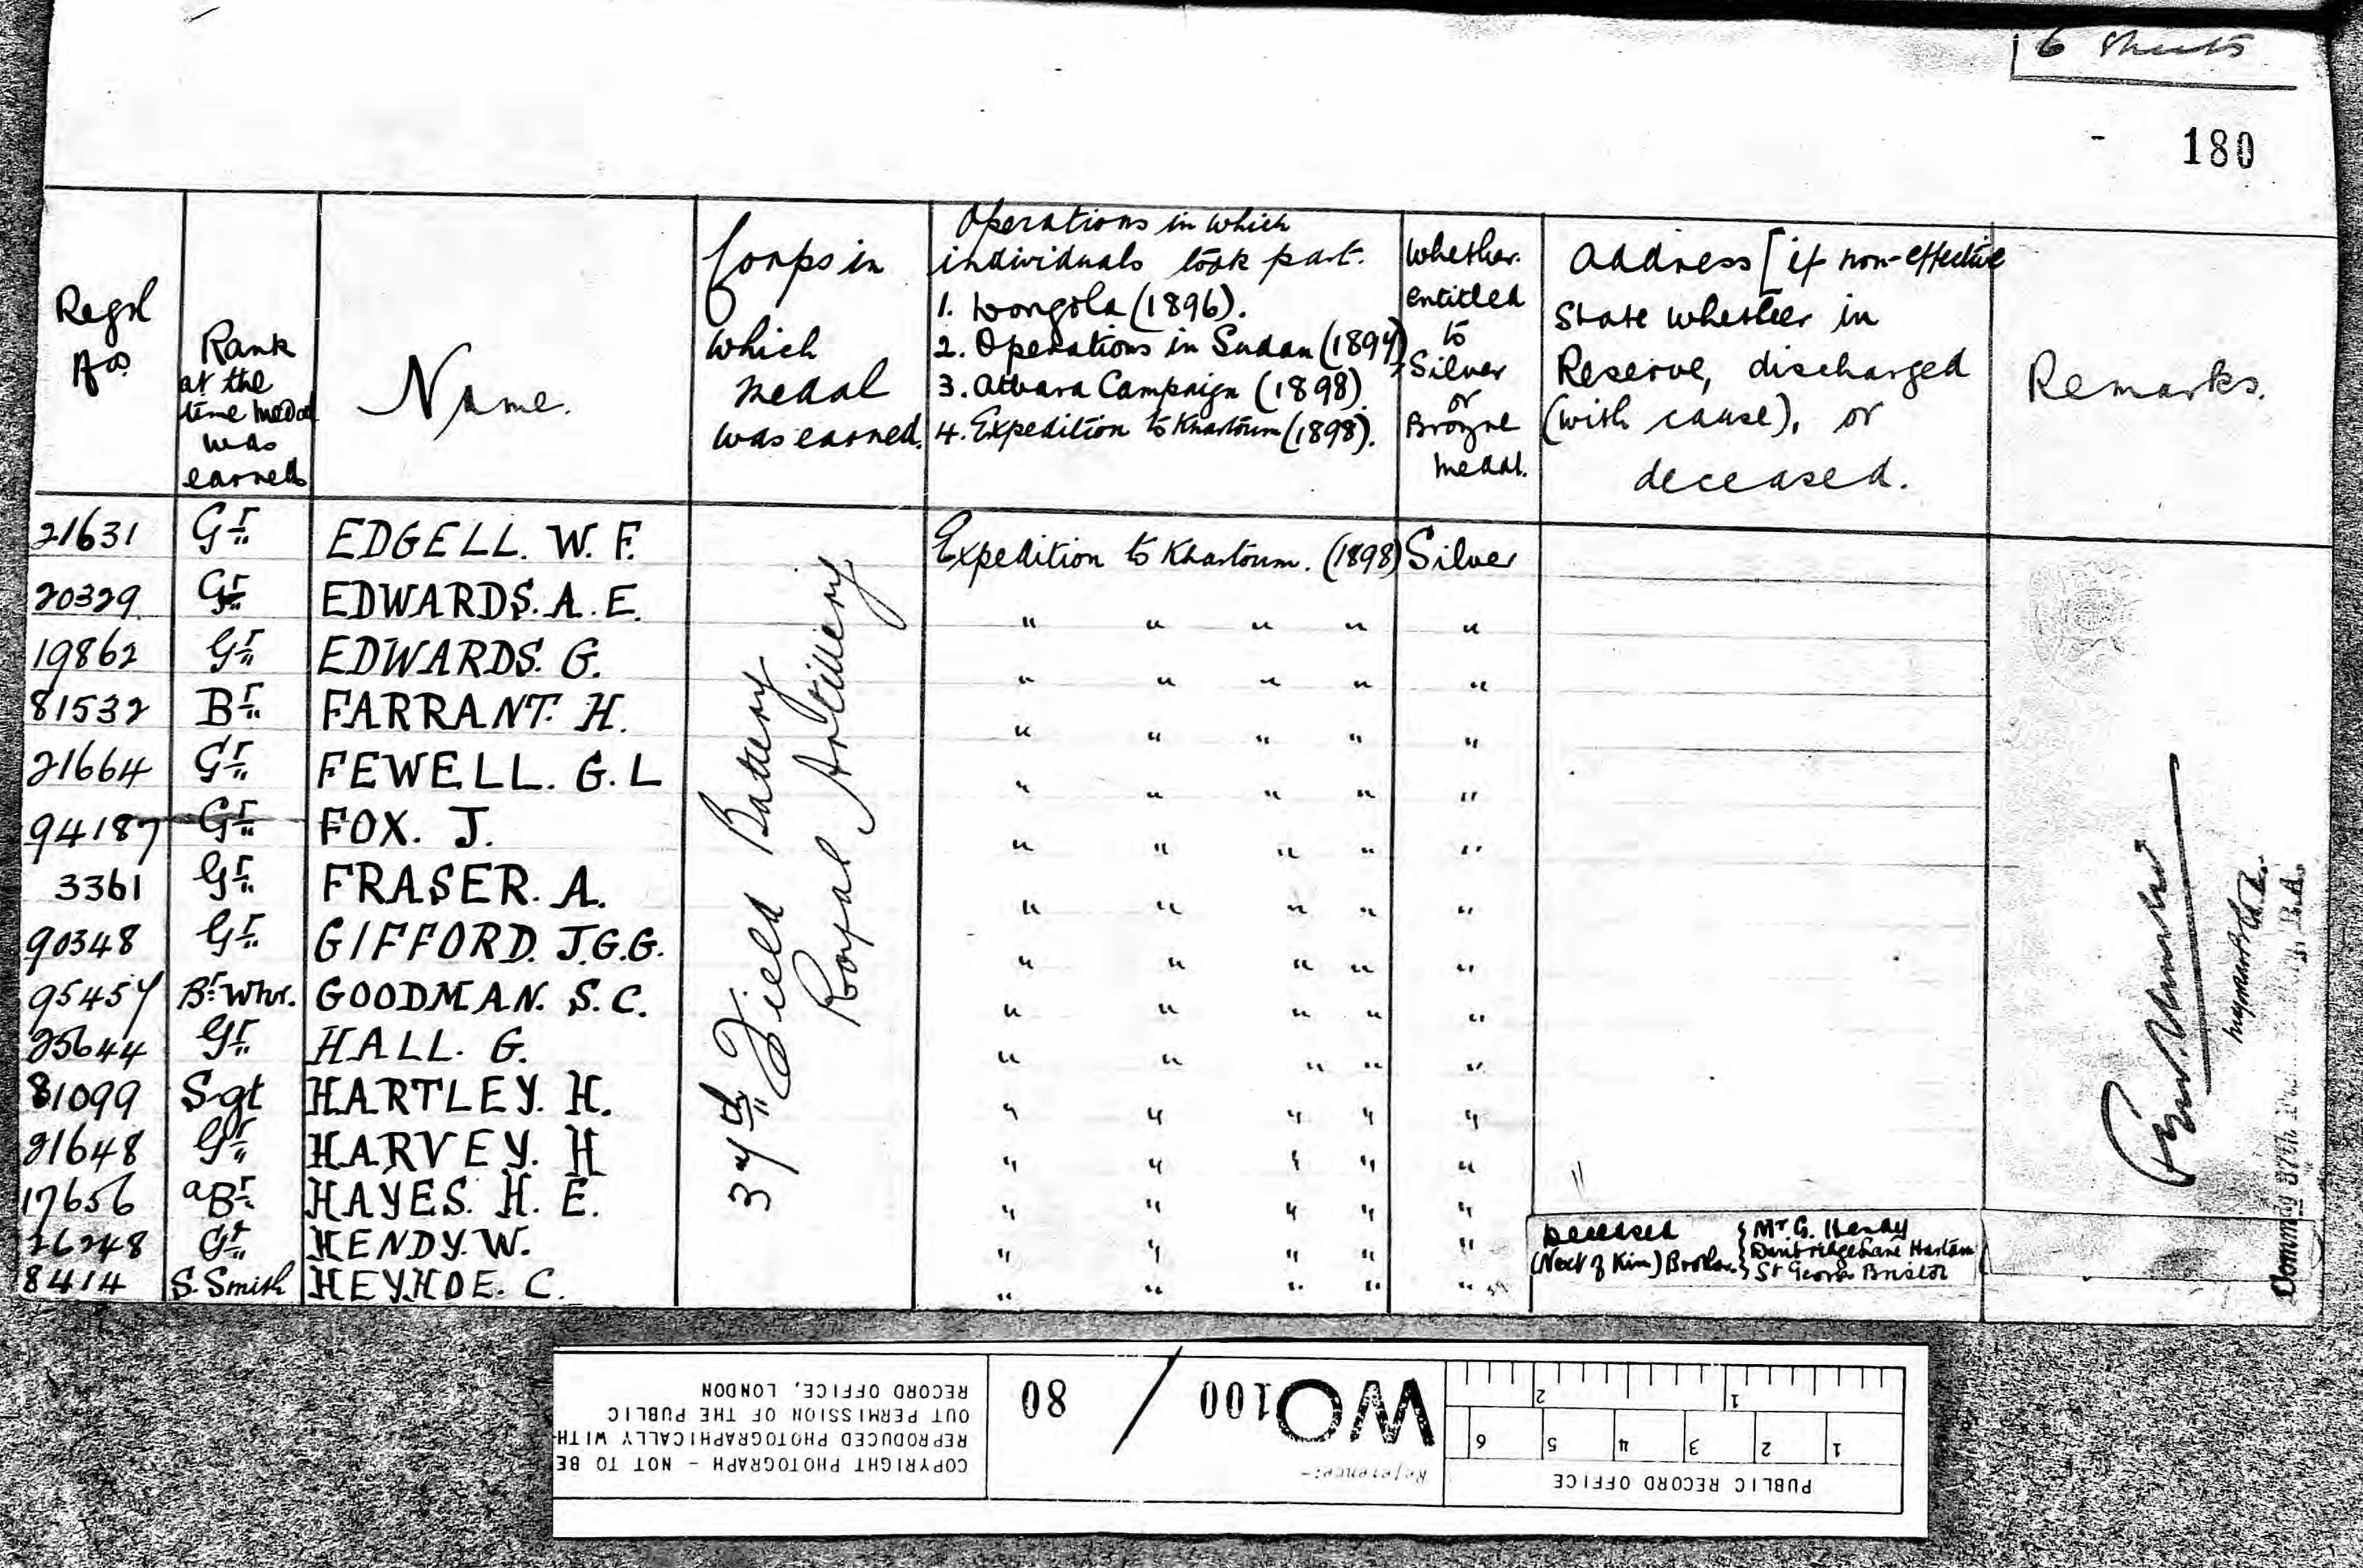 6 Sheets
180
Regtl No.
Rank at the time medal was earned
Name.
Corps in which medal was earned.
Operations in which individuals took part.
1. Dongola (1896).
2. Operations in Sudan (1897)
3. Atbara Campaign (1898).
4. Expedition to Khartoum (1898).
Whether entitled to Silver or Bronze medal.
Address [if non-effective
State whether in
Reserve, discharged
(with cause), or
deceased.
Remarks.
37th Field Battery
Royal Artillery
21631 Gr EDGELL. W. F. Expedition to Khartoum. (1898) Silver
20329 Gr EDWARDS. A. E. " " " " "
19862 Gr EDWARDS. G. " " " " "
81532 Br FARRANT. H. " " " " "
21664 Gr FEWELL. G. L " " " " "
94187 Gr FOX. J. " " " " "
3361 Gr FRASER. A. " " " " "
90348 Gr GIFFORD. J.G.G. " " " " "
95457 Br Whr. GOODMAN. S. C. " " " " "
25644 Gr HALL. G. " " " " "
81099 Sgt HARTLEY. H. " " " " "
21648 Gr HARVEY. H " " " " "
17656 aBr HAYES. H. E. " " " " "
26248 Gr HENDY. W. " " " " " Deceased
(Next of Kin) Brother
Mr. G. Hendy
St George Bristol
8414 S. Smith HEYHDE. C. " " " " "
Major R.A.
Commdg 37th R.A.
PUBLIC RECORD OFFICE
1 2 3 4 5 6
1 2
Reference:-
WO 100 / 80
COPYRIGHT PHOTOGRAPH - NOT TO BE
REPRODUCED PHOTOGRAPHICALLY WITH-
OUT PERMISSION OF THE PUBLIC
RECORD OFFICE, LONDON